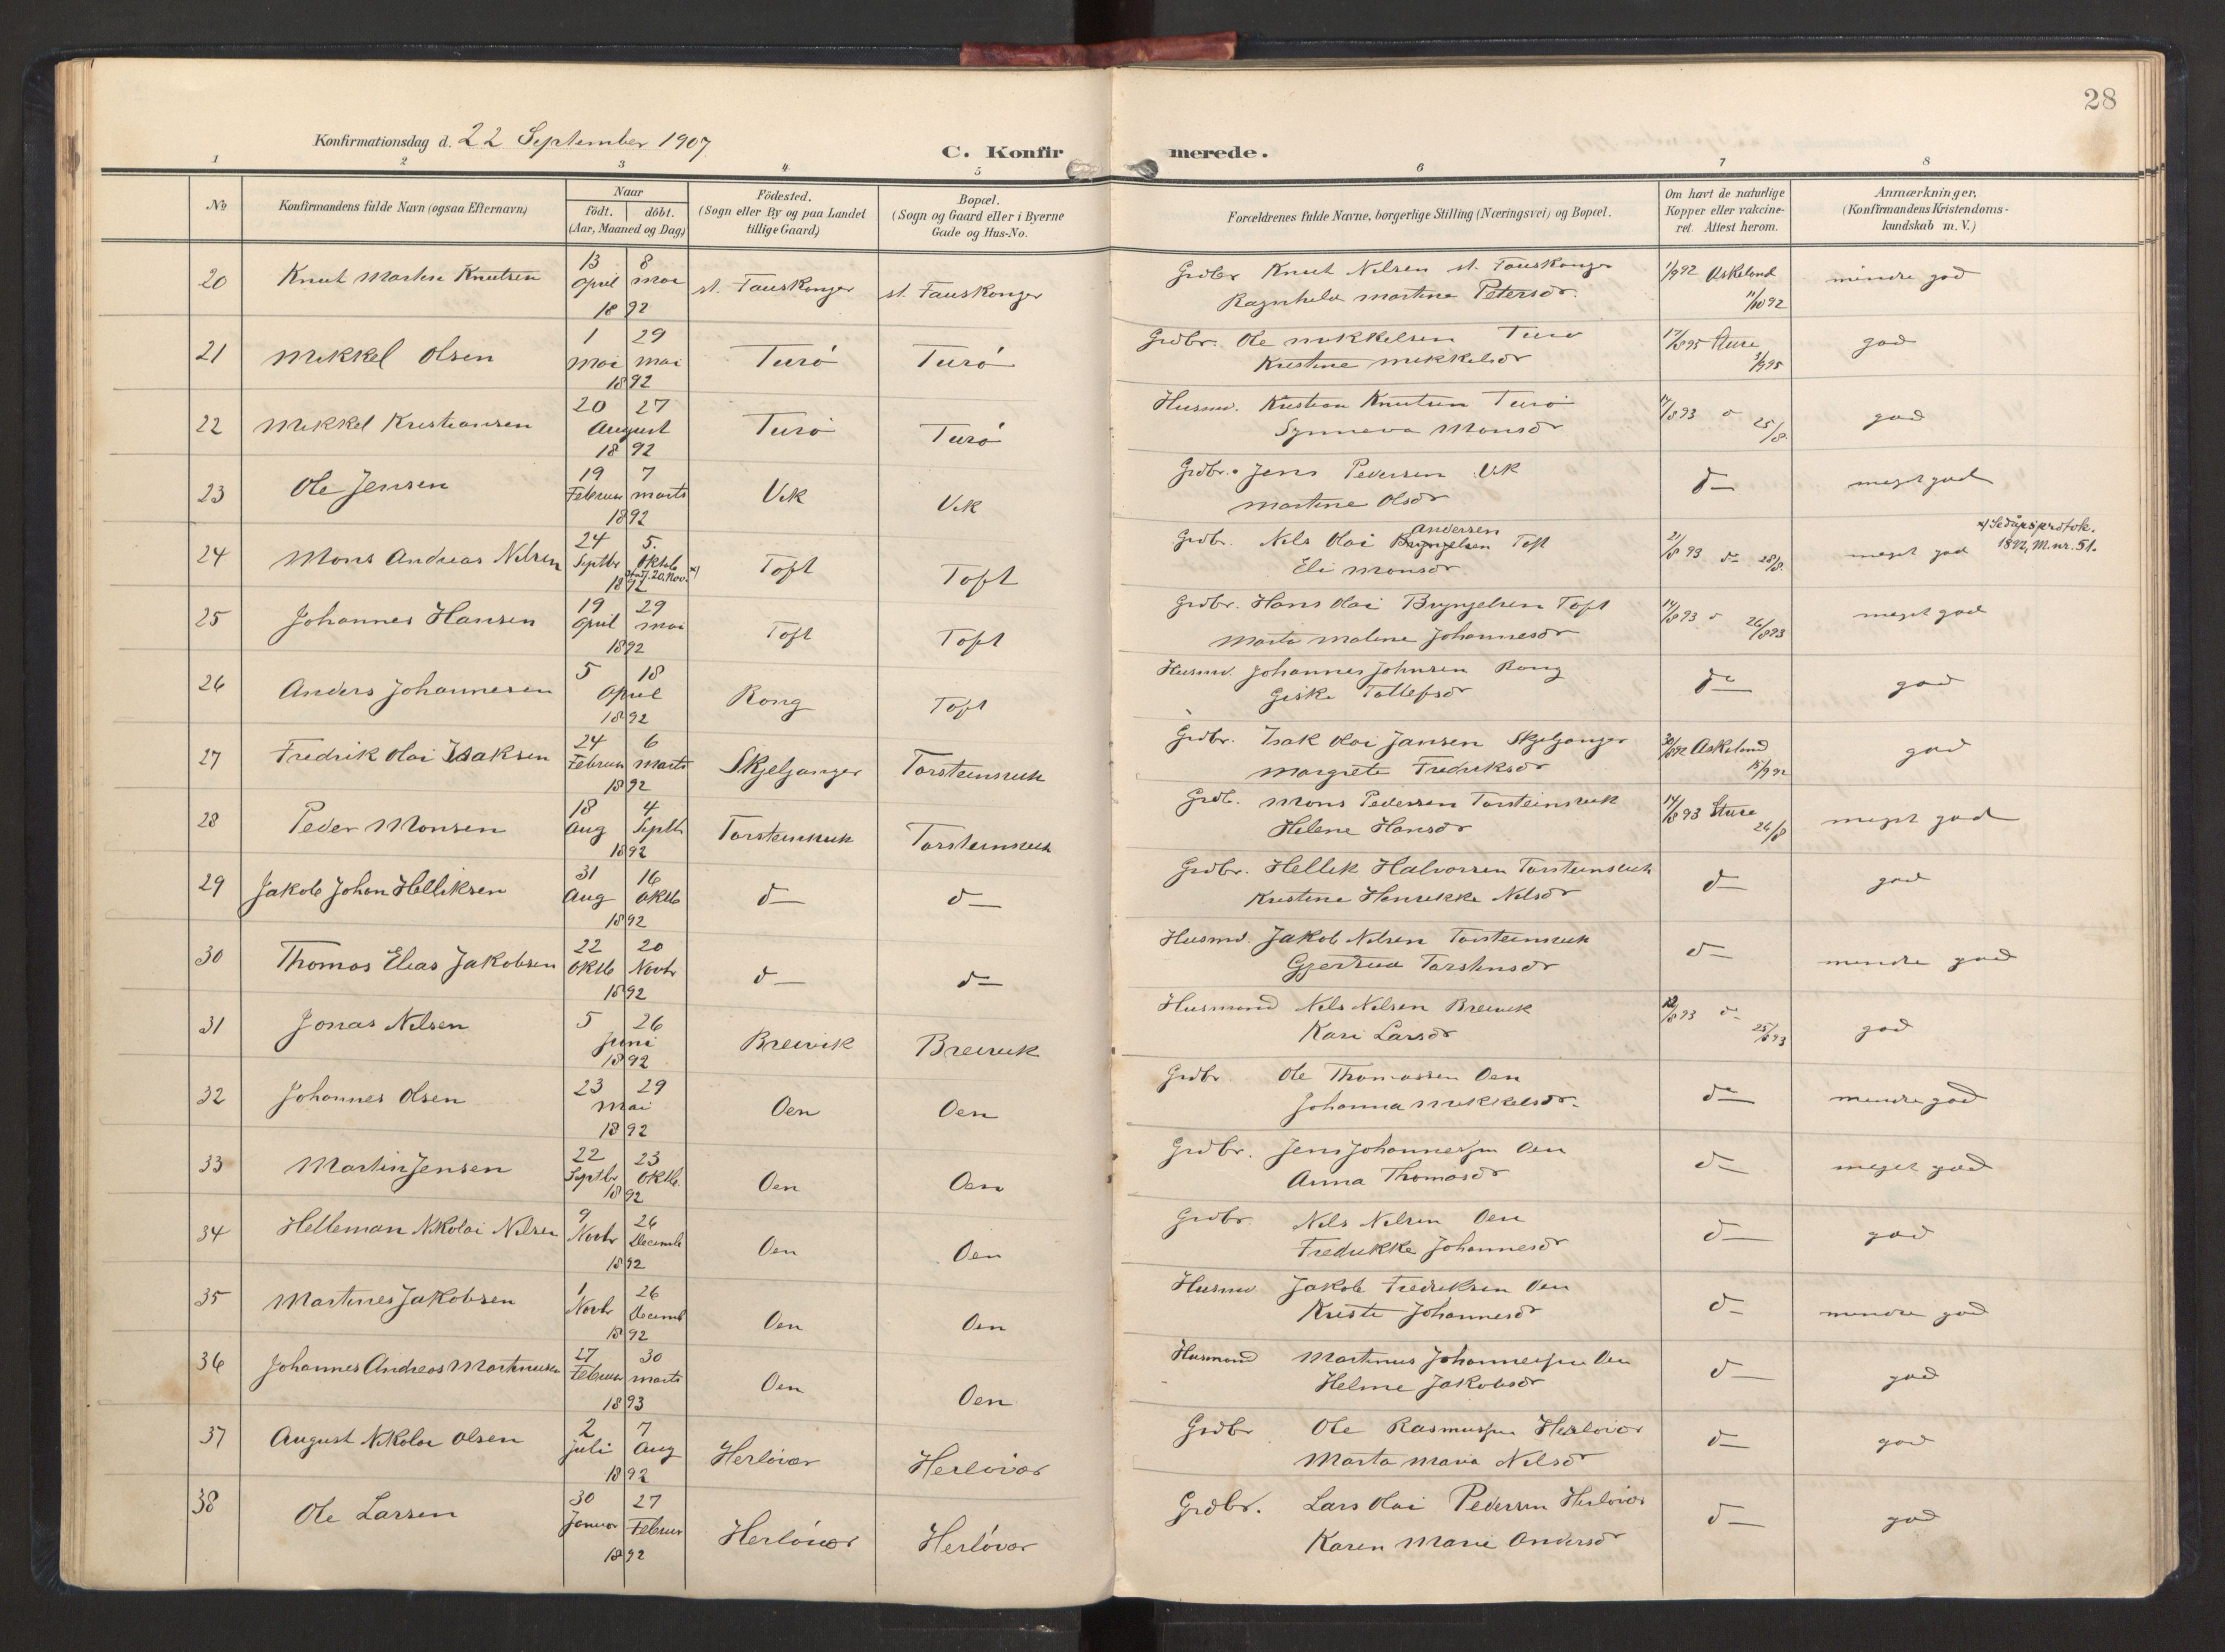 28
Konfirmationsdag d. 22 September 1907
C. Konfirmerede.
1 2 3 4 5 6 7 8
No
Konfirmandens fulde Navn (ogsaa Efternavn)
Naar
födt. döbt.
(Aar, Maaned og Dag)
Födested.
(Sogn eller By og paa Landet
tillige Gaard)
Bopæl.
(Sogn og Gaard eller i Byerne
Gade og Hus-No.
Forældrenes fulde Navne, borgerlige Stilling (Næringsvei) og Bopæl.
Om havt de naturlige
Kopper eller vakcine-
ret. Attest herom.
Anmærkninger.
(Konfirmandens Kristendoms-
kundskab m. V.)
20 Knut Martin Knutsen 13 April 8 mai 1892 st. Fauskanger st. Fauskanger Grdbr Knut Nilsen st. Fauskanger 1/9 92 Askeland 11/10 92 mindre god
Ragnhild Martina Petersdr.
21 Mikkel Olsen 1 mai 29 mai 1892 Turö Turö Grdbr. Ole Mikkelsen Turö 17/8 95 Sture 3/9 95 god
Kristine Mikkelsdr
22 Mikkel Kristiansen 20 27 August 1892 Turö Turö Husmd. Kristian Knutsen Turö 17/8 93 d 25/8. god
Synneva Monsdr
23 Ole Jensen 19 Februar 7 marts 1892 Vik Vik Grdbr. Jens Pedersen Vik d— meget god
Martine Olsdr
24 Mons Andreas Nilsen 24 Septbr 5. Oktob 20. Nov. x) 1892 Toft Toft Grdbr. Nils Olai Brynjelsen Andersen Toft 21/8 93 do 28/8. meget god
x) Se dåpsprotok. 1892, M.nr. 51.
Eli Monsdr
25 Johannes Hansen 19 April 29 mai 1892 Toft Toft Grdbr. Hans Olai Brynjelsen Toft 14/8 93 d 26/8 93 meget god
Marta Malene Johannesdr
26 Anders Johannesen 5 18 April 1892 Rong Toft Husmd. Johannes Johnsen Rong do— god
Giske Tollefsdr
27 Fredrik Olai Isaksen 24 Februar 6 Marts 1892 Skjeljanger Torsteinsvik Grdbr. Isak Olai Jansen Skjeljanger 30/8 92 Askeland 15/9 92 god
Margrete Fredriksdr
28 Peder Monsen 18 Aug 4 Septbr 1892 Torsteinsvik Torsteinsvik Grdb. Mons Pedersen Torsteinsvik 14/8 93 Sture 26/8 meget god
Helene Hansdr
29 Jakob Johan Helliksen 31 Aug 16 Oktb 1892 d— d— Grdbr. Hellik Halvorsen Torsteinsvik d— god
Kristine Henrikke Nilsdr
30 Thomas Elias Jakobsen 22 Oktb 20 Novbr 1892 d— d— Husmd. Jakob Nilsen Torsteinsvik d— mindre god
Gjertrud Torstensdr
31 Jonas Nilsen 5 26 Juni 1892 Breivik Breivik Husmand Nils Nilsen Breivik 12/8 93 d— 25/8 93 god
Kari Larsdr
32 Johannes Olsen 23 29 Mai 1892 Oen Oen Grdbr. Ole Thomassen Oen do— mindre god
Johanna Mikkelsdr.
33 Martin Jensen 22 Septbr 23 Oktb. 1892 Oen Oen Grdbr. Jens Johannessen Oen d— meget god
Anna Thomasdr
34 Helleman Nikolai Nilsen 9 Novbr 26 Decemb 1892 Oen Oen Grdbr. Nils Nilsen Oen d— god
Fredrikke Johannesdr
35 Martines Jakobsen 1 Novbr 26 Decemb 1892 Oen Oen Husmd Jakob Fredriksen Oen d— mindre god
Kristi Johannesdr
36 Johannes Andreas Martinusen 27 Februar 30 marts 1893 Oen Oen Husmand Martinus Johannessen Oen d— god
Helene Jakobsdr
37 August Nikolai Olsen 2 Juli 7 Aug 1892 Herlövær Herlövær Grdbr Ole Rasmussen Herlövær d— god
Marta Maria Nilsdr
38 Ole Larsen 30 Januar 27 Februar 1892 Herlövær Herlövær Grdbr. Lars Olai Pedersen Herlövær d— god
Karen Marie Andersdr